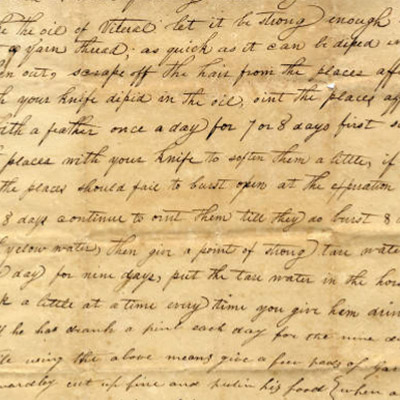 the oil of Viteral let it be strong enough
a yarn thread; as quick as it can be diped
out, scrape off the hair from the places aff
your knife dipid in the oil, oint the places aff
with a feather once a day for 7 or 8 days first
places with your knife to soften them a little, if
the places should fail to burst open at the expiration
8 days continue to oint them till they do burst &
yelow water, then give a point of strong tare wate
day for nine days, put the tare water in the hor
a little at a time every time you give him drin
he has drank a pint each day for the nine d
using the above means give a few pads of gar
cut up fine and put in his food when